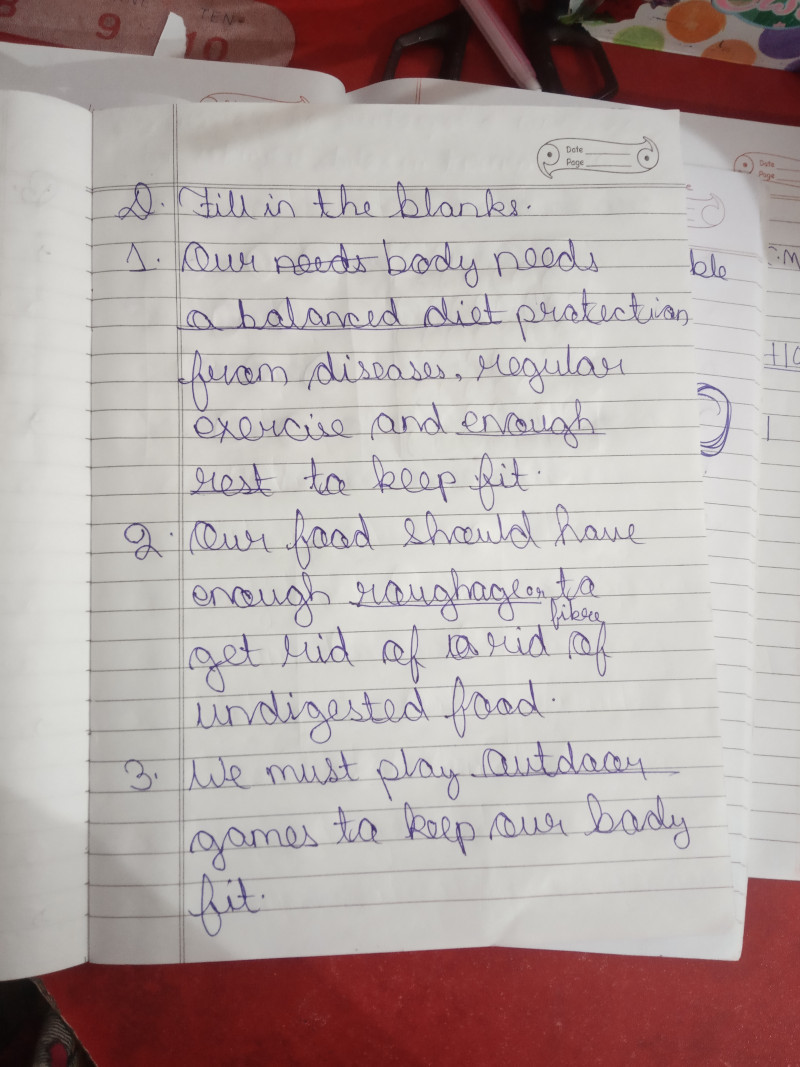 9
TEN
10
Date
Page
Date
Page
D. Fill in the blanks.
1. Our needs body needs
ble
a balanced diet protection
from diseases, regular
exercise and enough
rest to keep fit.
2. Our food should have
enough roughage or to
fibre
get rid of a rid of
undigested food.
3. We must play outdoor
games to keep our body
fit.